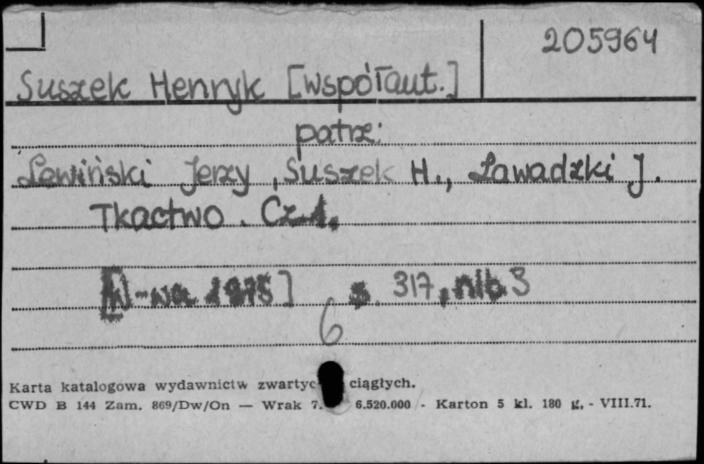 205964
Suszek Henryk [współaut.]
patrz:
Lewiński Jerzy, Suszek H., Zawadzki J.
Tkactwo. Cz. 1.
[W-wa 1975] s. 317, nlb 3
6
Karta katalogowa wydawnictw zwartyc ciągłych.
CWD B 144 Zam. 869/Dw/On — Wrak 7. 6.520.000 - Karton 5 kl. 180 g. - VIII.71.